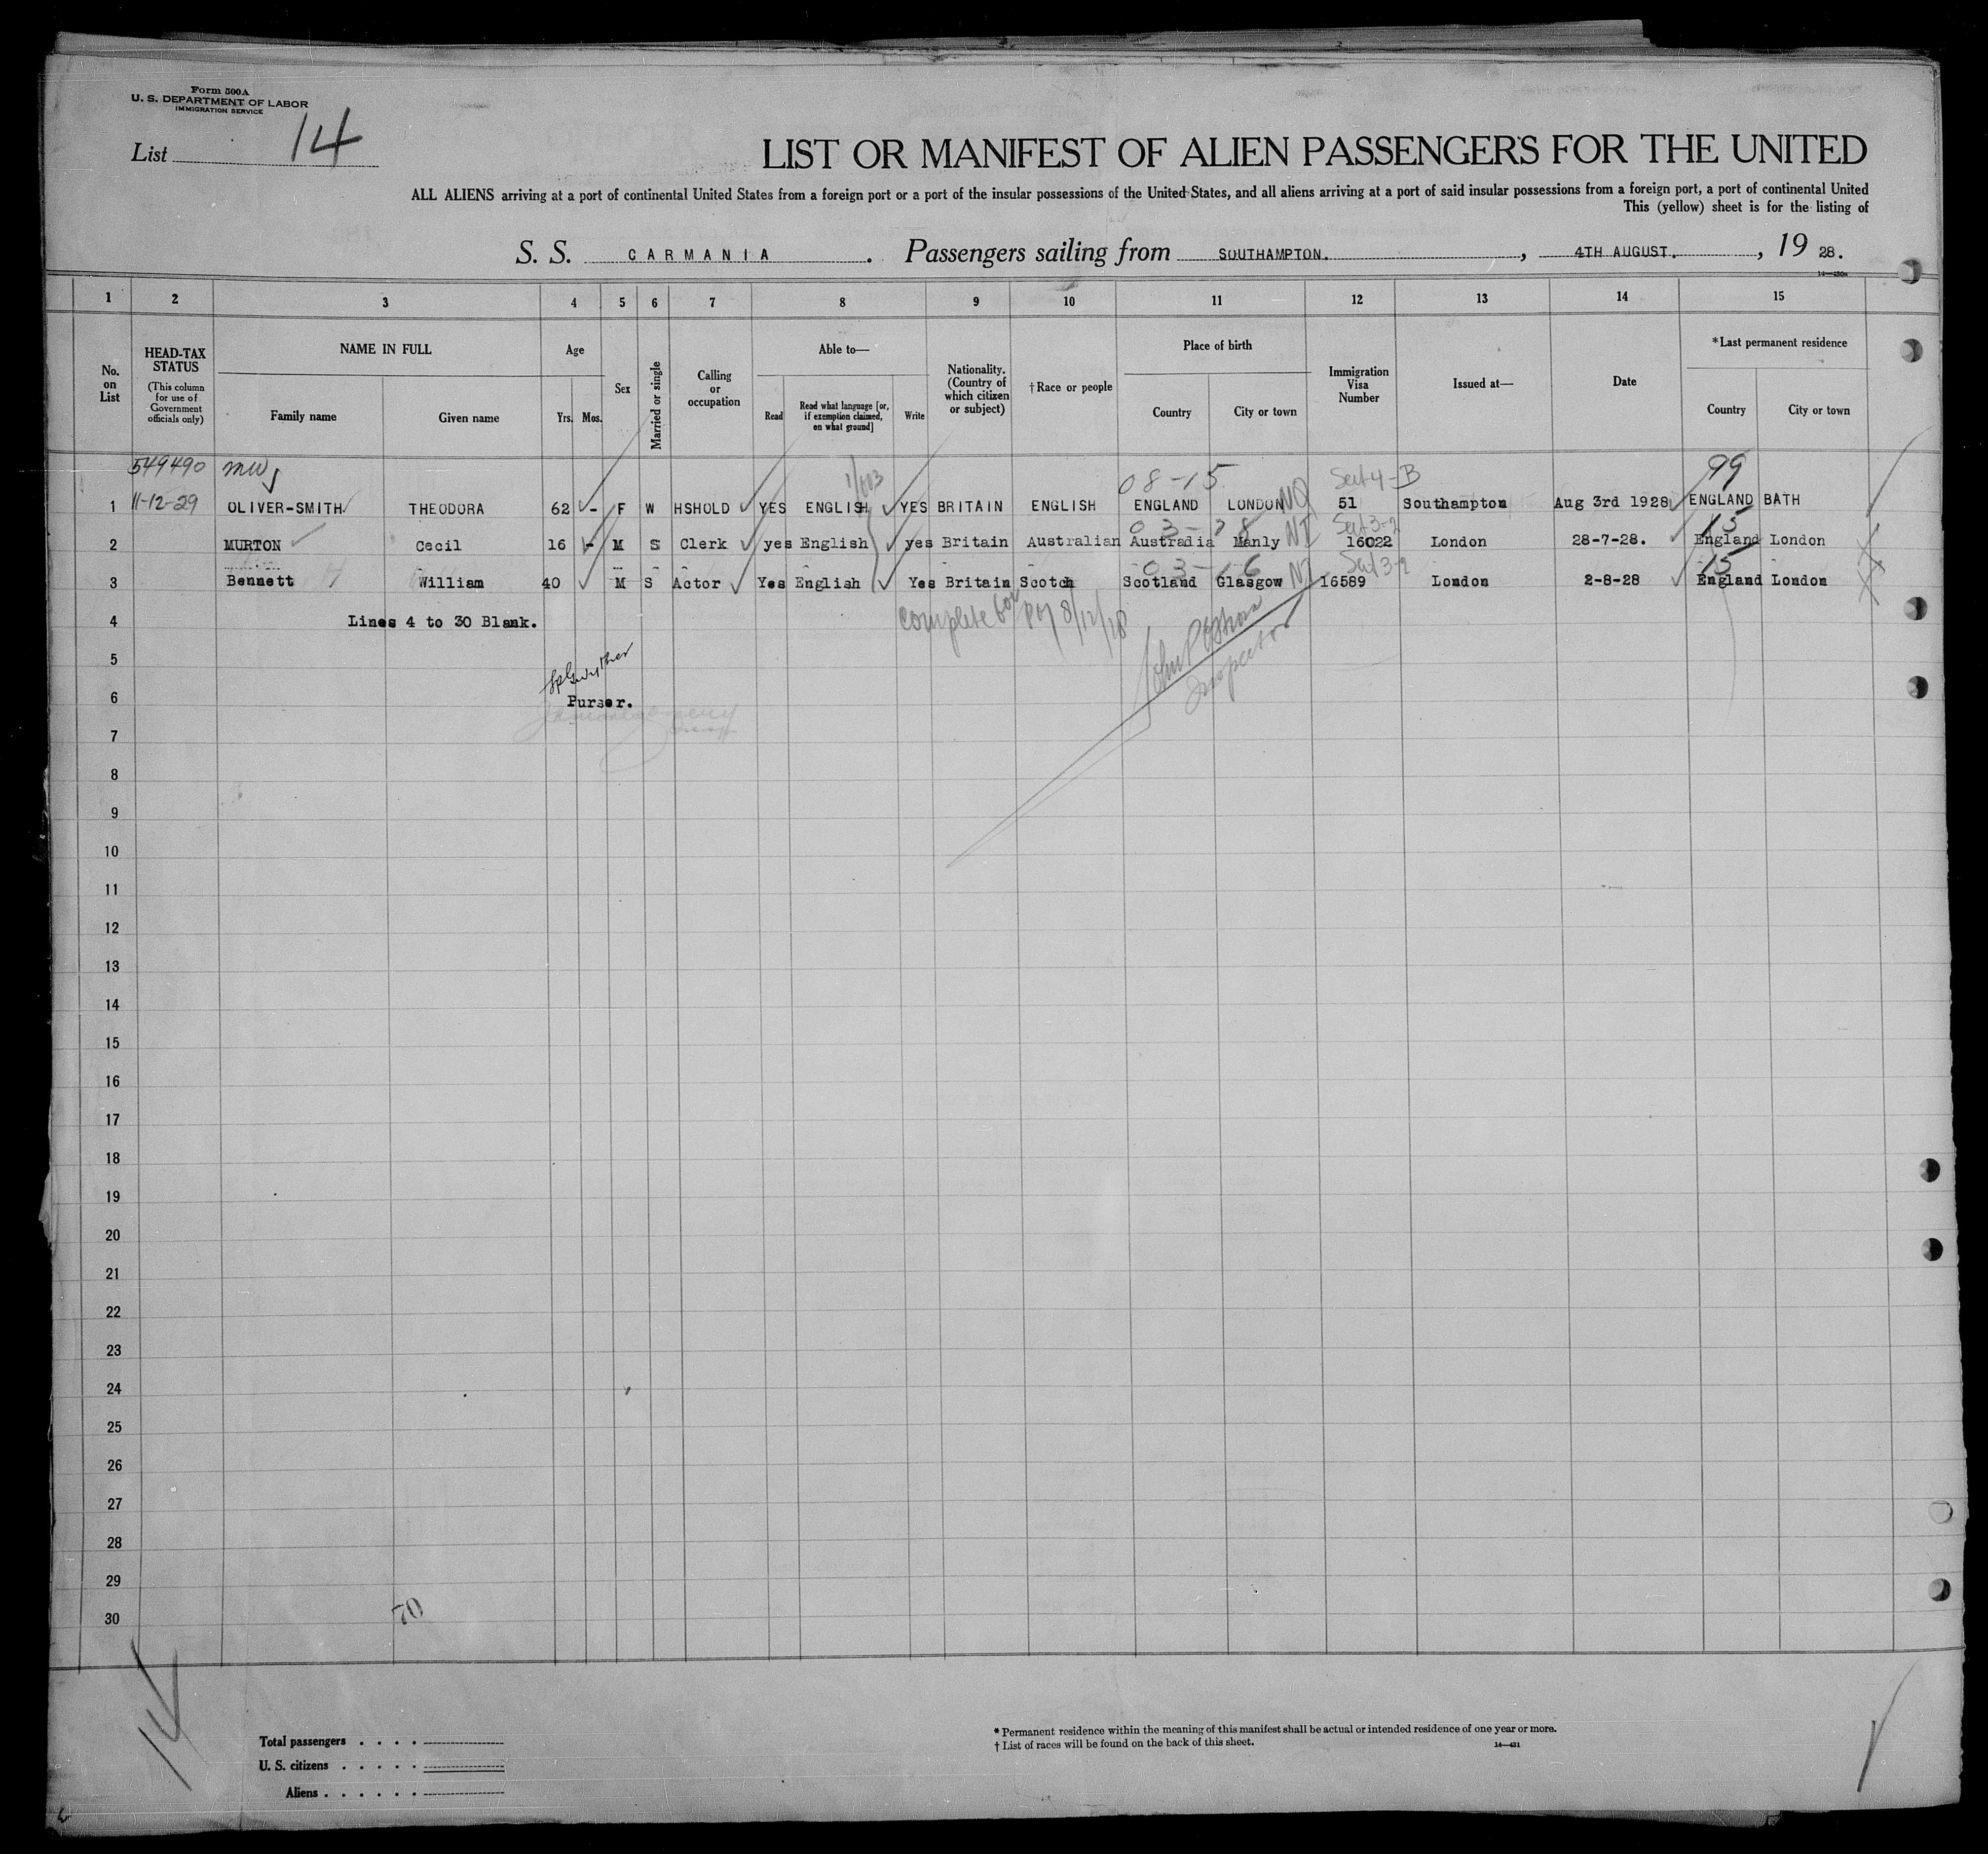 Form 500A
U. S. DEPARTMENT OF LABOR
IMMIGRATION SERVICE
List 14
LIST OR MANIFEST OF ALIEN PASSENGERS FOR THE UNITED
ALL ALIENS arriving at a port of continental United States from a foreign port or a port of the insular possessions of the United States, and all aliens arriving at a port of said insular possessions from a foreign port, a port of continental United
This (yellow) sheet is for the listing of
S. S. CARMANIA. Passengers sailing from SOUTHAMPTON., 4TH AUGUST., 19 28.
1 2 3 4 5 6 7 8 9 10 11 12 13 14 15
No. on List
HEAD-TAX STATUS
(This column for use of Government officials only)
NAME IN FULL
Family name Given name
Age
Yrs. Mos.
Sex
Married or single
Calling or occupation
Able to—
Read
Read what language [or, if exemption claimed, on what ground]
Write
Nationality. (Country of which citizen or subject)
†Race or people
Place of birth
Country City or town
Immigration Visa Number
Issued at—
Date
*Last permanent residence
Country City or town
549490 08-15 Sect 4-B 99
1 11-12-29 OLIVER-SMITH THEODORA 62 - F W HSHOLD YES ENGLISH YES BRITAIN ENGLISH ENGLAND LONDON NQ 51 Southampton Aug 3rd 1928 ENGLAND BATH
03-28 Sect 3-2 15
2 MURTON Cecil 16 - M S Clerk yes English yes Britain Australian Australia Manly NI 16022 London 28-7-28. England London
03-16 Sect 3-2 15
3 Bennett William 40 M S Actor Yes English Yes Britain Scotch Scotland Glasgow NI 16589 London 2-8-28 England London
4 Lines 4 to 30 Blank.
Complete 8/12/28
Inspector
5
6 Purser.
7
8
9
10
11
12
13
14
15
16
17
18
19
20
21
22
23
24
25
26
27
28
29
30
70
14
Total passengers
U. S. citizens
Aliens
* Permanent residence within the meaning of this manifest shall be actual or intended residence of one year or more.
† List of races will be found on the back of this sheet.
14—431